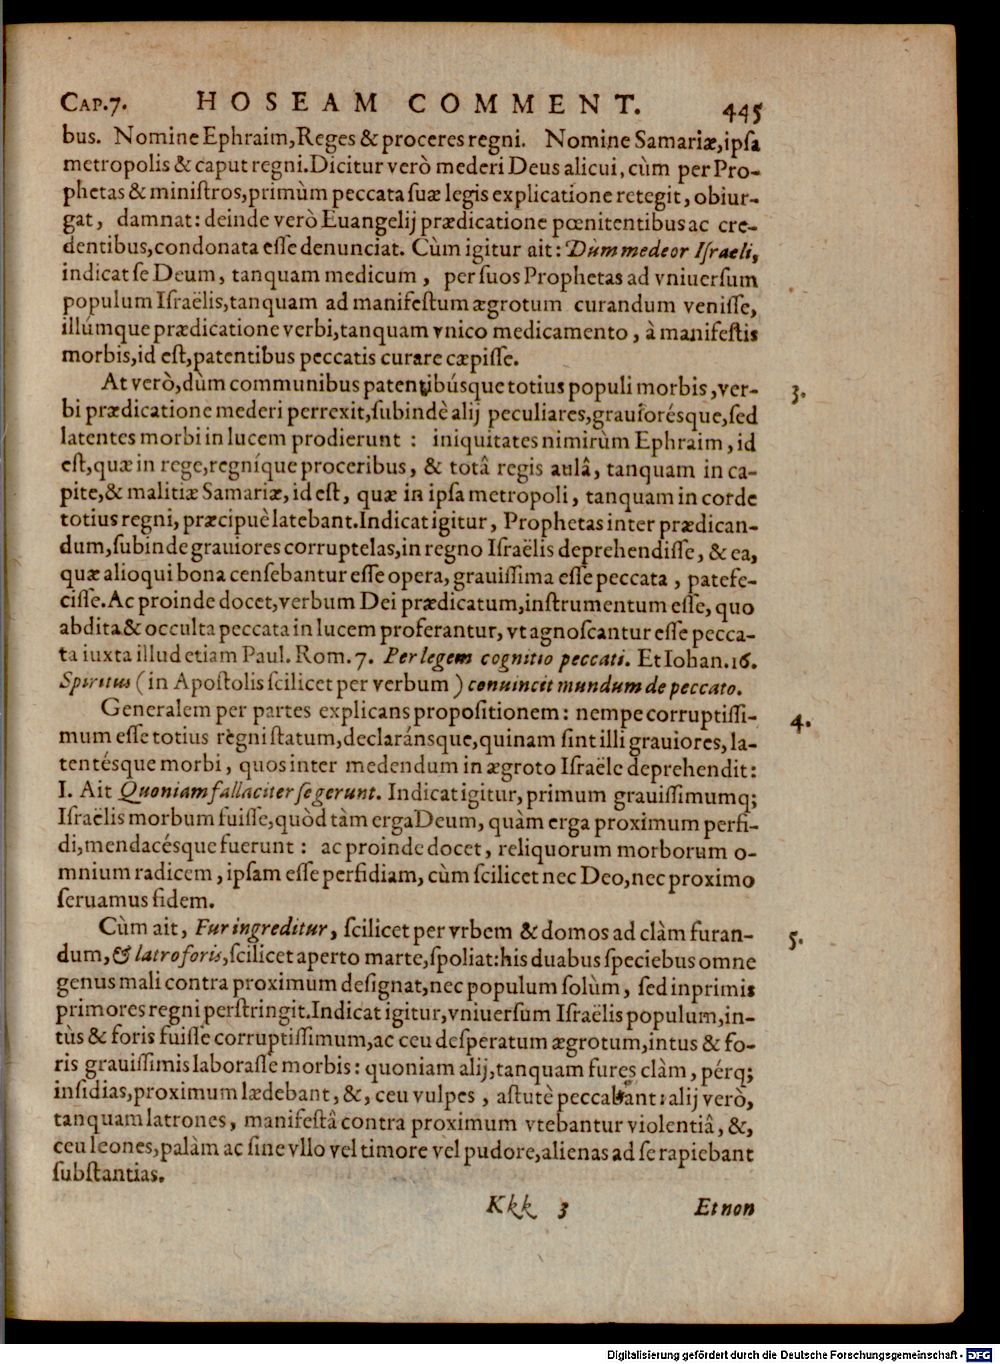 CAP.7. HOSEAM COMMENT. 445
bus. Nomine Ephraim, Reges & proceres regni. Nomine Samariæ, ipſa
metropolis & caput regni. Dicitur verò mederi Deus alicui, cùm per Pro-
phetas & miniſtros, primùm peccata ſuæ legis explicatione retegit, obiur-
gat, damnat: deinde verò Euangelij prædicatione pœnitentibus ac cre-
dentibus, condonata eſſe denunciat. Cùm igitur ait: Dum medeor Iſraeli,
indicat ſe Deum, tanquam medicum, per ſuos Prophetas ad vniuerſum
populum Iſraëlis, tanquam ad manifeſtum ægrotum curandum veniſſe,
illúmque prædicatione verbi, tanquam vnico medicamento, à manifeſtis
morbis, id eſt, patentibus peccatis curare cæpiſſe.
At verò, dùm communibus patentibúsque totius populi morbis, ver- 3.
bi prædicatione mederi perrexit, ſubindè alij peculiares, grauiorésque, ſed
latentes morbi in lucem prodierunt: iniquitates nimirùm Ephraim, id
eſt, quæ in rege, regníque proceribus, & totâ regis aulâ, tanquam in ca-
pite, & malitiæ Samariæ, id eſt, quæ in ipſa metropoli, tanquam in corde
totius regni, præcipuè latebant. Indicat igitur, Prophetas inter prædican-
dum, ſubinde grauiores corruptelas, in regno Iſraëlis deprehendiſſe, & ea,
quæ alioqui bona cenſebantur eſſe opera, grauiſſima eſſe peccata, patefe-
ciſſe. Ac proinde docet, verbum Dei prædicatum, inſtrumentum eſſe, quo
abdita & occulta peccata in lucem proferantur, vt agnoſcantur eſſe pecca-
ta iuxta illud etiam Paul. Rom. 7. Per legem cognitio peccati. Et Iohan. 16.
Spiritus (in Apoſtolis ſcilicet per verbum) conuincit mundum de peccato.
Generalem per partes explicans propoſitionem: nempe corruptiſſi- 4.
mum eſſe totius règni ſtatum, declaránsque, quinam ſint illi grauiores, la-
tentésque morbi, quos inter medendum in ægroto Iſraële deprehendit:
I. Ait Quoniam fallaciter ſe gerunt. Indicat igitur, primum grauiſſimumq;
Iſraëlis morbum fuiſſe, quòd tàm erga Deum, quàm erga proximum perfi-
di, mendacésque fuerunt: ac proinde docet, reliquorum morborum o-
mnium radicem, ipſam eſſe perfidiam, cùm ſcilicet nec Deo, nec proximo
ſeruamus fidem.
Cùm ait, Fur ingreditur, ſcilicet per vrbem & domos ad clàm furan- 5.
dum, & latro foris, ſcilicet aperto marte, ſpoliat: his duabus ſpeciebus omne
genus mali contra proximum deſignat, nec populum ſolùm, ſed inprimis
primores regni perſtringit. Indicat igitur, vniuerſum Iſraëlis populum, in-
tùs & foris fuiſſe corruptiſſimum, ac ceu deſperatum ægrotum, intus & fo-
ris grauiſſimis laboraſſe morbis: quoniam alij, tanquam fures clàm, pérq;
inſidias, proximum lædebant, &, ceu vulpes, aſtutè peccabant: alij verò,
tanquam latrones, manifeſtâ contra proximum vtebantur violentiâ, &,
ceu leones, palàm ac ſine vllo vel timore vel pudore, alienas ad ſe rapiebant
ſubſtantias.
Kkk 3 Et non
Digitalisierung gefördert durch die Deutsche Forschungsgemeinschaft - DFG